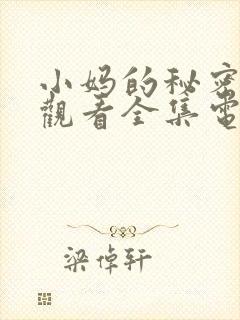 小妈的秘密
觀看全集電
梁倬轩